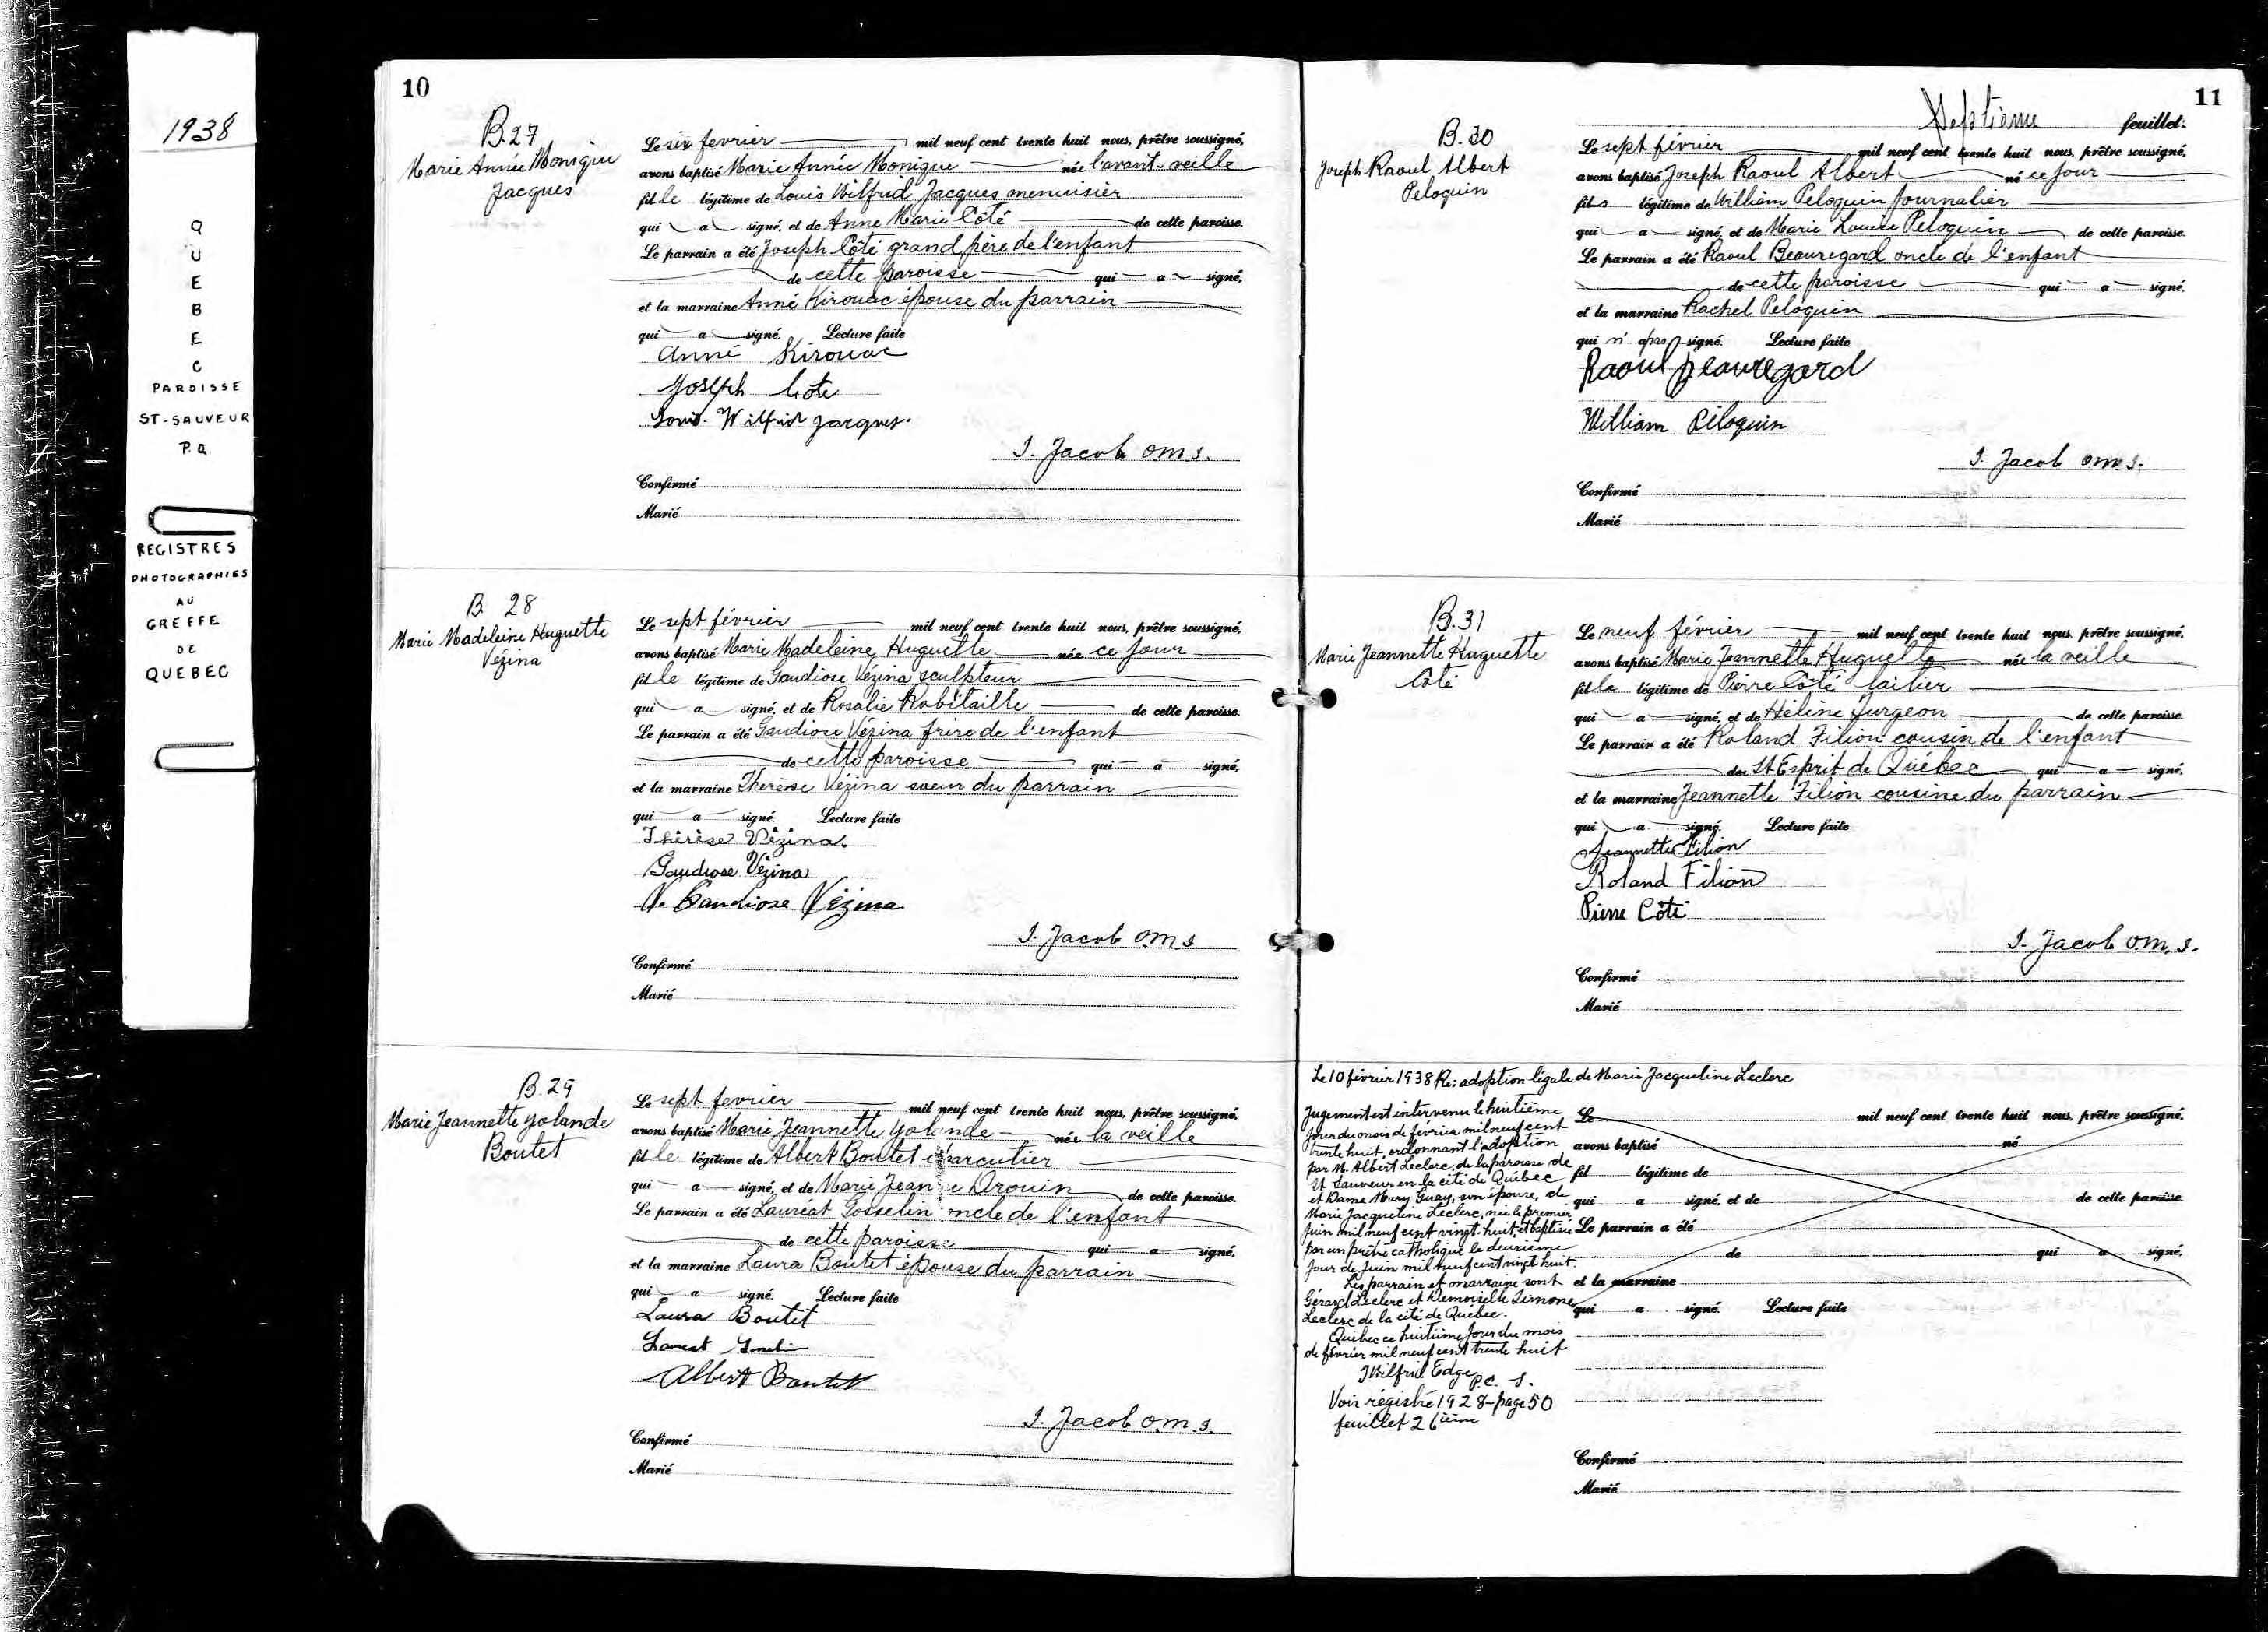 1938
QUEBEC
PAROISSE
ST-SAUVEUR
P.Q.
REGISTRES
PHOTOGRAPHIES
AU
GREFFE
DE
QUEBEC
10
B.27
Marie Année Monique
Jacques
Le six fevrier mil neuf cent trente huit nous, prêtre soussigné,
avons baptisé Marie Année Monique née l'avant-veille
fille légitime de Louis Wilfrid Jacques menuisier
qui a signé, et de Anne Marie Côté de cette paroisse.
Le parrain a été Joseph Côté grand père de l'enfant
de cette paroisse qui a signé,
et la marraine Anné Kirouac épouse du parrain
qui a signé. Lecture faite
Anné Kirouac
Joseph Cote
Louis-Wilfrid Jacques.
J. Jacob o.m.i.
Confirmé
Marié
B 28
Marie Madeleine Huguette
Vézina
Le sept février mil neuf cent trente huit nous, prêtre soussigné,
avons baptisé Marie Madeleine Huguette née ce jour
fille légitime de Gaudiose Vézina sculpteur
qui a signé, et de Rosalie Robitaille de cette paroisse.
Le parrain a été Gaudiose Vézina frère de l'enfant
de cette paroisse qui a signé,
et la marraine Thérèse Vézina soeur du parrain
qui a signé. Lecture faite
Thérèse Vézina.
Gaudiose Vézina
Gaudiose Vézina
J. Jacob o.m.i
Confirmé
Marié
B.29
Marie Jeannette Yolande
Boutet
Le sept fevrier mil neuf cent trente huit nous, prêtre soussigné,
avons baptisé Marie Jeannette Yolande née la veille
fille légitime de Albert Boutet charcutier
qui a signé, et de Marie Jeanne Drouin de cette paroisse.
Le parrain a été Lauréat Gosselin oncle de l'enfant
de cette paroisse qui a signé,
et la marraine Laura Boutet épouse du parrain
qui a signé. Lecture faite
Laura Boutet
Albert Boutet
J. Jacob o.m.i.
Confirmé
Marié
11
Septième feuillet.
B.30
Joseph Raoul Albert
Peloquin
Le sept février mil neuf cent trente huit nous, prêtre soussigné,
avons baptisé Joseph Raoul Albert né ce jour
fils légitime de William Peloquin journalier
qui a signé, et de Marie Louise Peloquin de cette paroisse.
Le parrain a été Raoul Beauregard oncle de l'enfant
de cette paroisse qui a signé,
et la marraine Rachel Peloquin
qui n'a pas signé. Lecture faite
Raoul Beauregard
William Péloquin
J. Jacob o.m.i.
Confirmé
Marié
B.31
Marie Jeannette Huguette
Côté
Le neuf février mil neuf cent trente huit nous, prêtre soussigné,
avons baptisé Marie Jeannette Huguette née la veille
fille légitime de Pierre Côté laitier
qui a signé, et de Hélène Turgeon de cette paroisse.
Le parrain a été Roland Filion cousin de l'enfant
du St Esprit de Québec qui a signé,
et la marraine Jeannette Filion cousine du parrain
qui a signé. Lecture faite
Jeannette Filion
Roland Filion
Pierre Côté
J. Jacob o.m.i.
Confirmé
Marié
Le 10 février 1938 Re: adoption légale de Marie Jacqueline Leclerc
Jugement est intervenu le huitième
jour du mois de février mil neuf cent
trente huit, ordonnant l'adoption
par M. Albert Leclerc, de la paroisse de
St Sauveur en la cité de Québec
et Dame Mary Guay, son épouse, de
Marie Jacqueline Leclerc, née le premier
juin mil neuf cent vingt-huit, et baptisée
par un prêtre catholique le deuxième
jour de juin mil neuf cent vingt huit.
Les parrain et marraine sont
Gérard Leclerc et Demoiselle Simone
Leclerc de la cité de Québec.
Québec ce huitième jour du mois
de février mil neuf cent trente huit
Wilfrid Edge
P.C. S.
Voir régistre 1928-page 50
feuillet 26ième
Le mil neuf cent trente huit nous, prêtre soussigné,
avons baptisé né
fil légitime de
qui a signé, et de de cette paroisse
Le parrain a été
de qui a signé,
et la marraine
qui a signé. Lecture faite
Confirmé
Marié